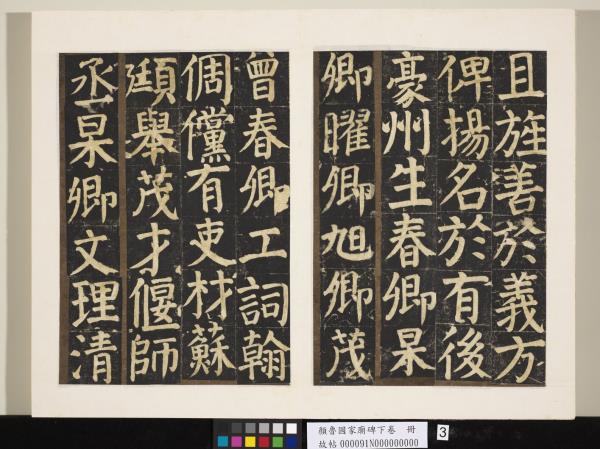 且旌善於義方
俾揚名於有後
豪州生春卿杲
卿曜卿旭卿茂
曾春卿工詞翰
倜儻有吏材蘇
頲舉茂才偃師
丞杲卿文理清
顏魯國家廟碑下卷 冊
故帖 000091N000000000
3